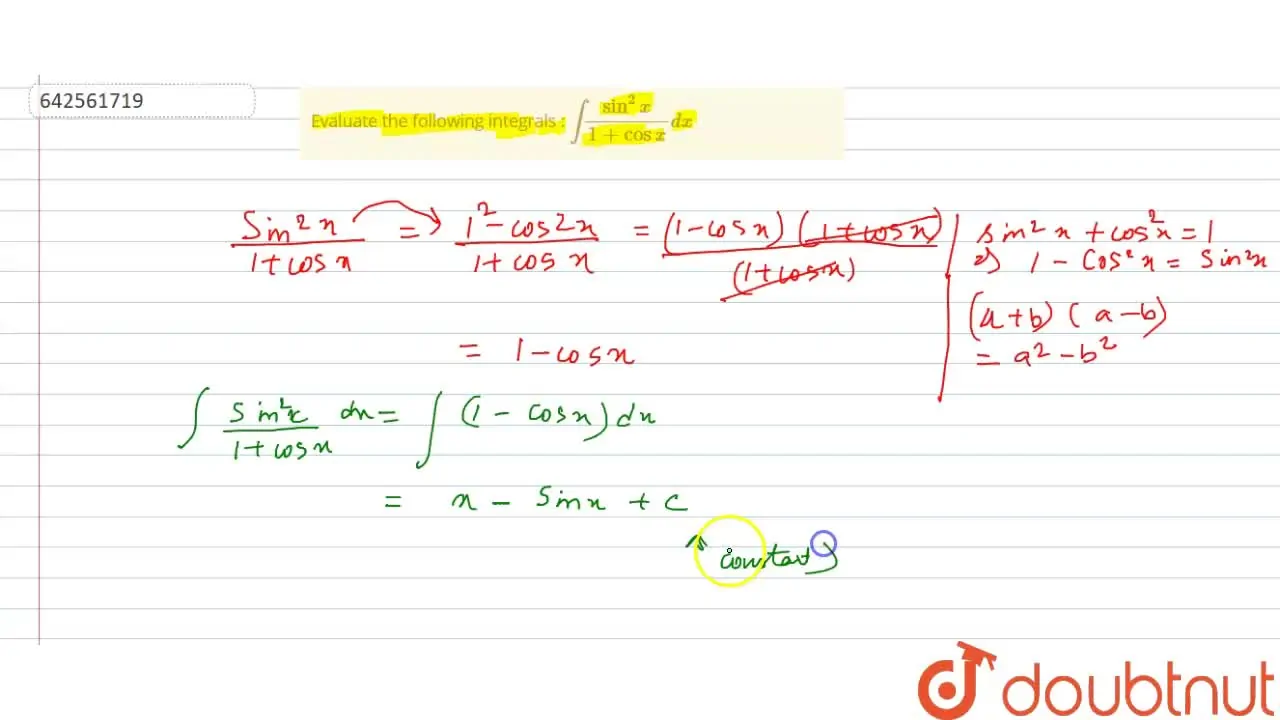 642561719
Evaluate the following integrals : ∫ sin² x / 1 + cos x dx
Sin² x / 1 + cos x = 1² - cos2x / 1 + cos x = (1 - cos x) (1 + cos x) / (1 + cos x)
= 1 - cos x
sin² x + cos² x = 1
⇒ 1 - Cos² x = Sin² x
(a + b) (a - b)
= a² - b²
∫ Sin² x / 1 + cos x dx = ∫ (1 - cos x) dx
= x - Sin x + c
constant
doubtnut